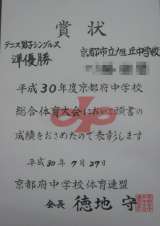 賞状
テニス男子シングルス
準優勝
京都市立旭丘中学校
平成30年度京都府中学校
総合体育大会において頭書の
成績をおさめたので表彰します
平成30年7月27日
京都府中学校体育連盟
会長 徳地 守